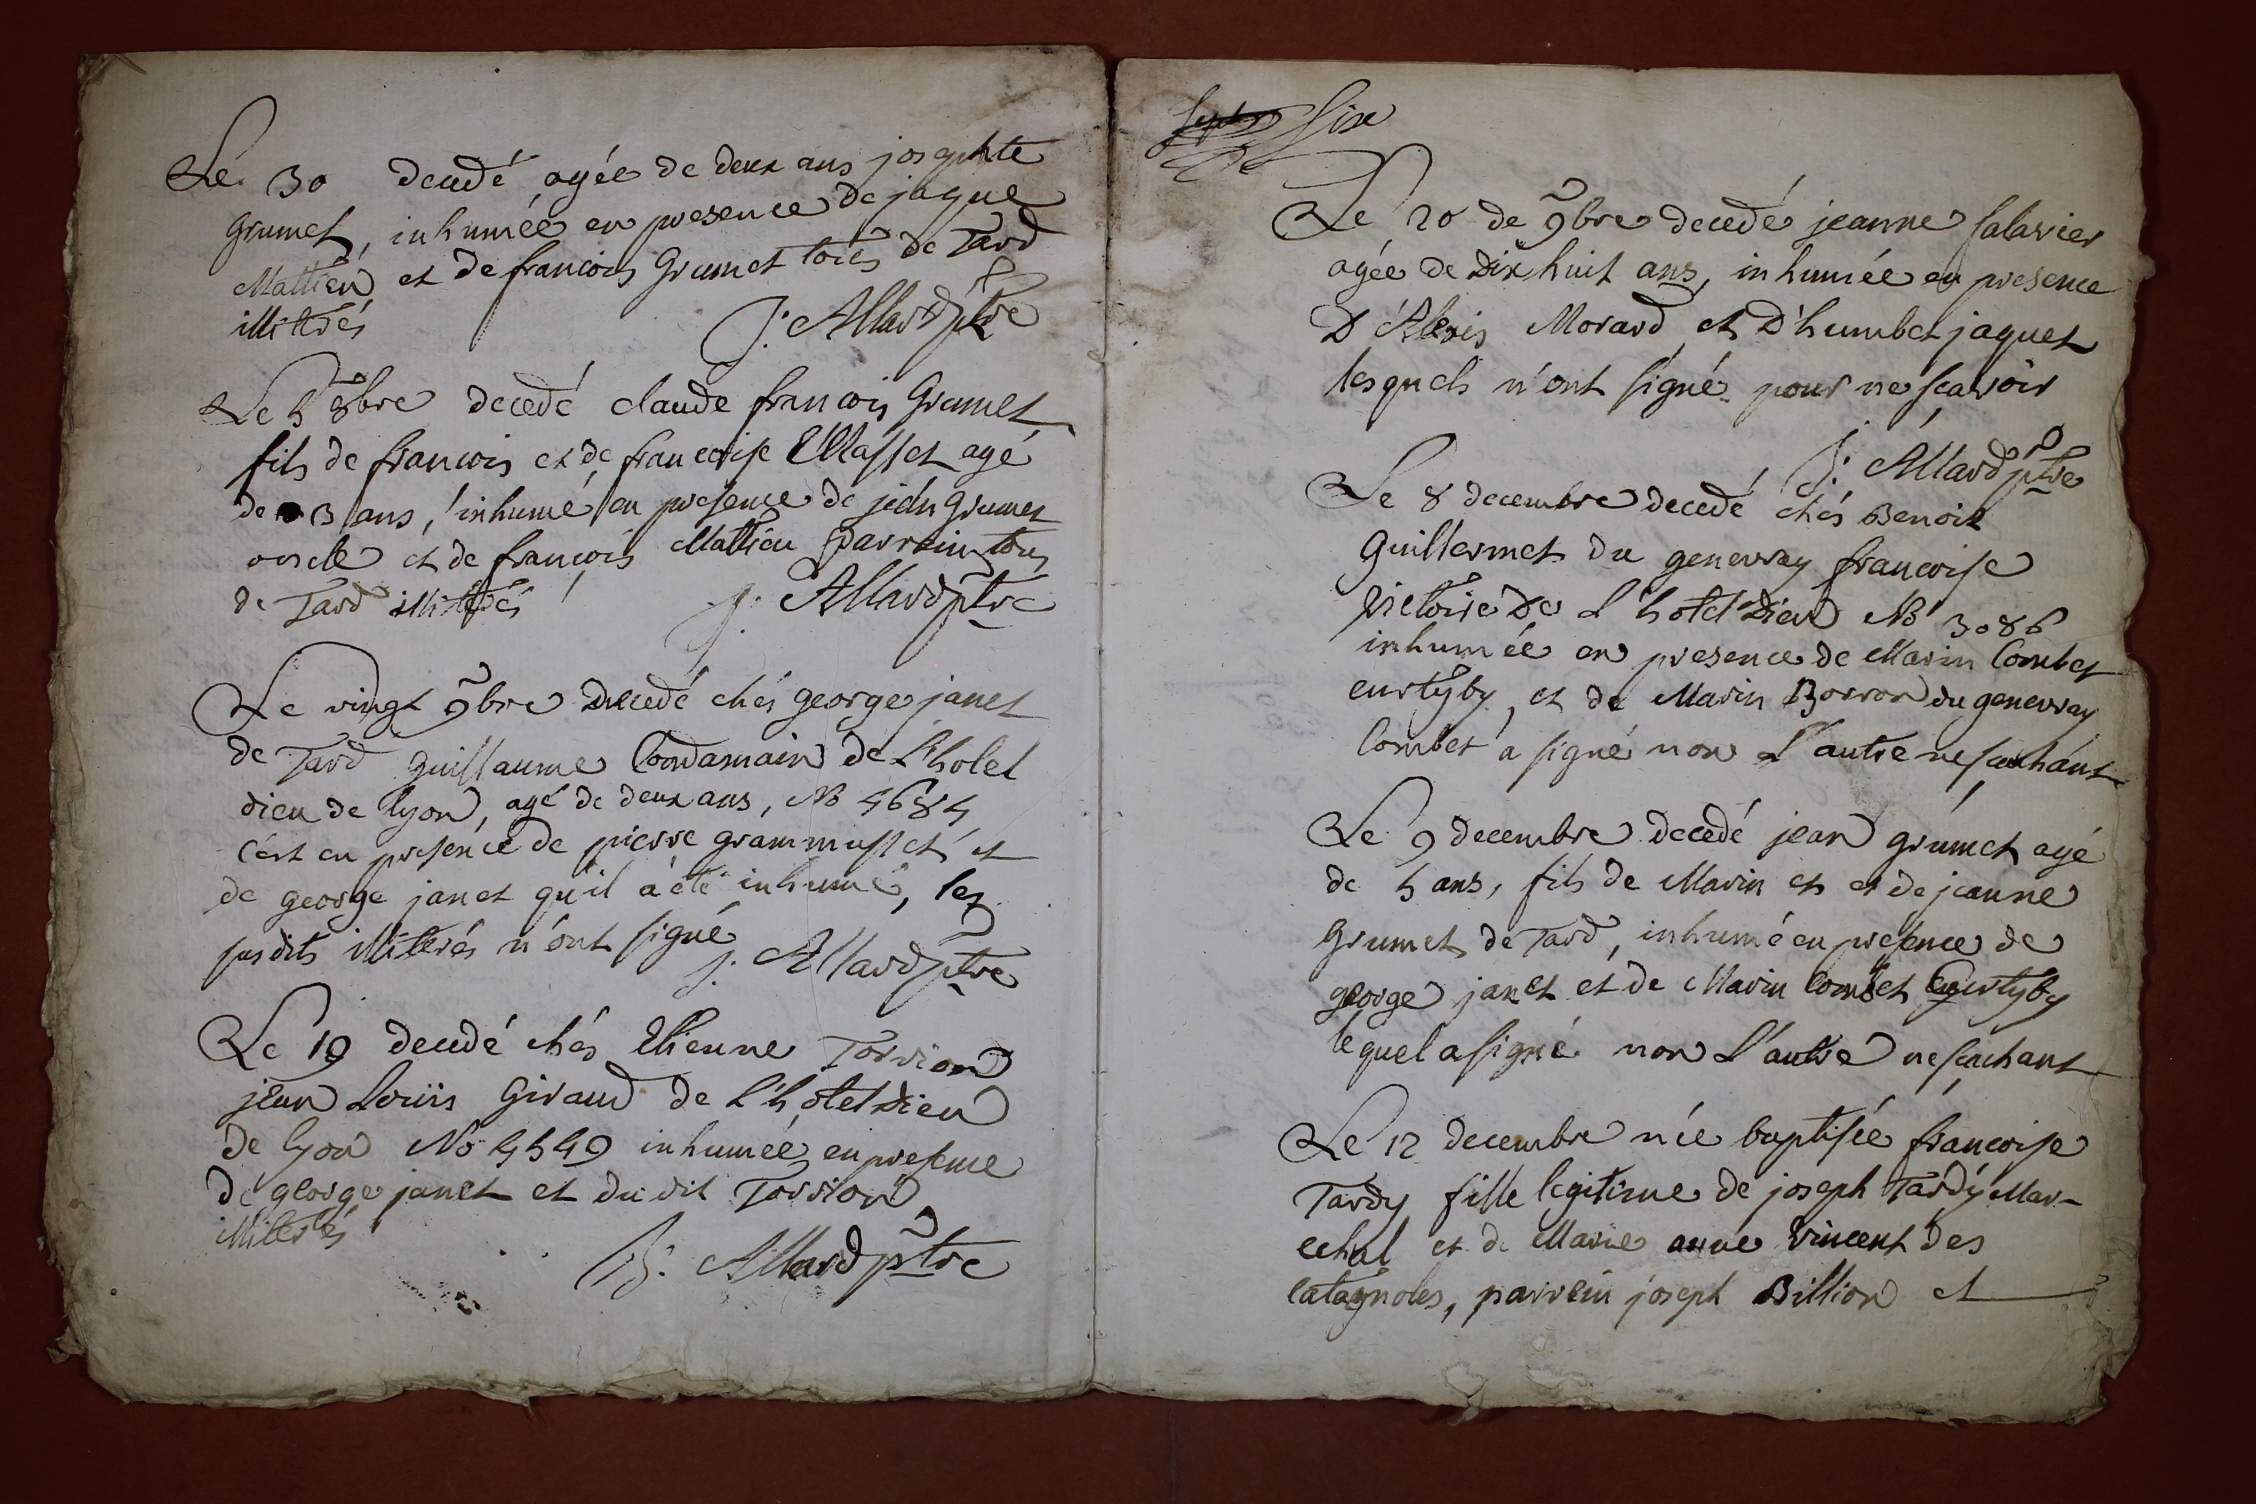 Le 30 decedé agée de deux ans josephte
grumet, inhumée en presence de jaque
Mattieu et de francois Grumet toies de Tard
illiterés J. Allard ptre
Le 5 8bre decedé claude francois Grumet
fils de francois et de francoise Masset agé
de 3 ans, inhumé en presence de jean grumet
oncle et de francois Mattieu parrein tous
de Tard illiterés J. Allard ptre
Le vingt 9bre decedé chés george janet
de Tard guillaume Condamain de L'hotel
dieu de lyon, agé de deux ans, No 4684
c'est en presence de pierre grammusset et
de george janet qu'il a été inhumé, les
susdits illiterés n'ont signé J. Allard ptre
Le 19 decedé chés Etienne Torrion
jean Louis Giraud de L'hotel dieu
de lyon No 4549 inhumée en presence
de george janet et du dit Torrion
illiterés
J. Allard ptre
six
Le 20 de 9bre decedé jeanne salavier
agée de dix huit ans, inhumée en presence
D'Alexis Morard et D'humbet jaquet
lesquels n'ont signé pour ne scavoir
J. Allard ptre
Le 8 decembre decedé chés Benoit
Guillermet du genevray francoise
victoire De L'hotel Dieu No 3086
inhumée en presence de Marin Combet
curtyby, et de Marin Borron du genevray
Combet a signé non L'autre ne sachant
Le 9 decembre decedé jean grumet agé
de 5 ans, fils de Marin et et de jeanne
Grumet de Tard, inhumé en presence de
george janet et de Marin Combet Curtyby
lequel a signé non L'autre ne scachant
Le 12 decembre née baptisée francoise
Tardy fille legitime de joseph Tardy Mar-
echal et de Marie anne vincent des
catagnoles, parrein joseph Billion et